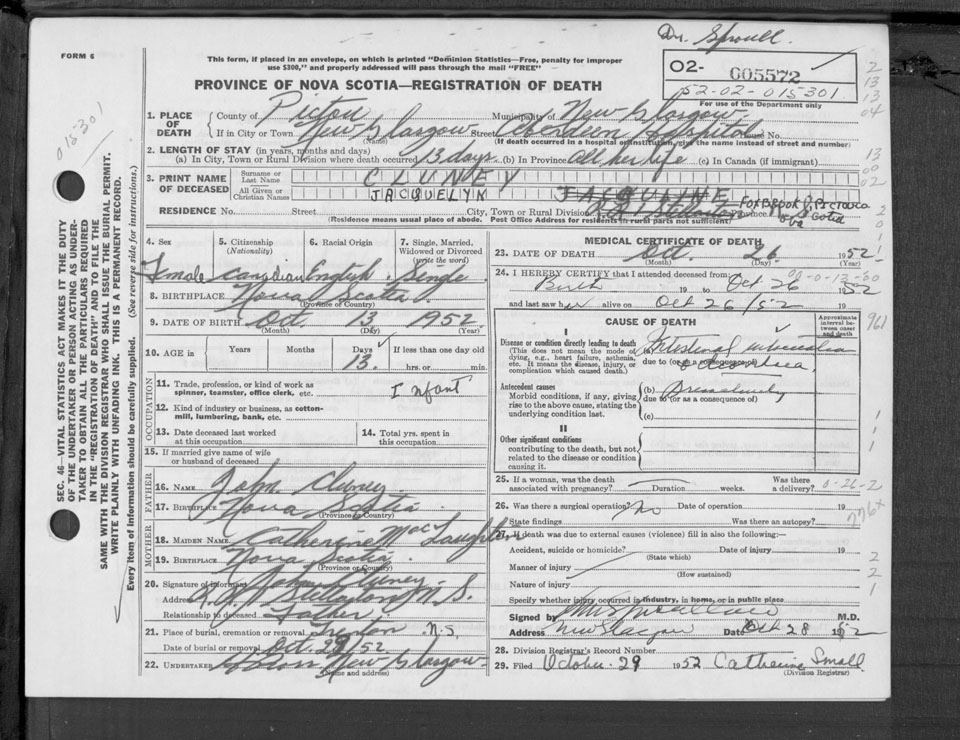 Dr. Sproull.
FORM 6
This form, if placed in an envelope, on which is printed "Dominion Statistics—Free, penalty for improper
use $300," and properly addressed will pass through the mail "FREE"
02- 005572
52-02-015301
For use of the Department only
PROVINCE OF NOVA SCOTIA—REGISTRATION OF DEATH
015-301
1. PLACE OF DEATH
County of Pictou Municipality of New Glasgow
If in City or Town New Glasgow Street Aberdeen Hospital House No.
(Name) (If death occurred in a hospital or institution, give the name instead of street and number)
2. LENGTH OF STAY (in years, months and days)
(a) In City, Town or Rural Division where death occurred 13 days (b) In Province all her life (c) In Canada (if immigrant)
3. PRINT NAME OF DECEASED
Surname or Last Name CLUNEY
All Given or Christian Names JACQUELYN JACQULINE
RESIDENCE No. Street City, Town or Rural Division R.R. 1 Stellarton Province FOXBROOK Pictou Co Nova Scotia
(Residence means usual place of abode. Post Office Address for residents in rural parts not sufficient)
SEC. 46—VITAL STATISTICS ACT MAKES IT THE DUTY
OF THE UNDERTAKER OR PERSON ACTING AS UNDERTAKER TO OBTAIN ALL THE PARTICULARS REQUIRED
IN THE "REGISTRATION OF DEATH" AND TO FILE THE
SAME WITH THE DIVISION REGISTRAR WHO SHALL ISSUE THE BURIAL PERMIT.
WRITE PLAINLY WITH UNFADING INK. THIS IS A PERMANENT RECORD.
Every item of information should be carefully supplied. (See reverse side for instructions.)
4. Sex Female
5. Citizenship (Nationality) Canadian
6. Racial Origin English
7. Single, Married, Widowed or Divorced (write the word) Single
8. BIRTHPLACE Nova Scotia
(Province or Country)
9. DATE OF BIRTH Oct. 13 1952
(Month) (Day) (Year)
10. AGE in Years Months Days 13. If less than one day old
hrs. or min.
OCCUPATION
11. Trade, profession, or kind of work as
spinner, teamster, office clerk, etc. Infant
12. Kind of industry or business, as cotton-
mill, lumbering, bank, etc.
13. Date deceased last worked
at this occupation
14. Total yrs. spent in
this occupation
15. If married give name of wife
or husband of deceased
FATHER
16. NAME John Cluney
17. BIRTHPLACE Nova Scotia
(Province or Country)
MOTHER
18. MAIDEN NAME Catherine MacLaughlin
19. BIRTHPLACE Nova Scotia
(Province or Country)
20. Signature of informant John Cluney.
Address R.R. 1 Stellarton N.S.
Relationship to deceased Father.
21. Place of burial, cremation or removal Trenton N.S.
Date of burial or removal Oct 29/52
22. UNDERTAKER New Glasgow
(Name and address)
MEDICAL CERTIFICATE OF DEATH
23. DATE OF DEATH Oct. 26 1952
(Month) (Day) (Year)
24. I HEREBY CERTIFY that I attended deceased from
Birth 19 to Oct 26 1952
and last saw her alive on Oct 26/52 19
CAUSE OF DEATH
Approximate interval between onset and death
I
Disease or condition directly leading to death
(This does not mean the mode of
dying, e.g., heart failure, asthenia,
etc. It means the disease, injury, or
complication which caused death.)
(a) Intestinal
due to (or as a consequence of)
diarrhea.
Antecedent causes
Morbid conditions, if any, giving
rise to the above cause, stating the
underlying condition last.
(b) Prematurity
due to (or as a consequence of)
(c)
II
Other significant conditions
contributing to the death, but not
related to the disease or condition
causing it.
25. If a woman, was the death
associated with pregnancy? Duration weeks. Was there
a delivery? 0-22-2
26. Was there a surgical operation? No Date of operation 19
State findings Was there an autopsy?
27. If death was due to external causes (violence) fill in also the following:—
Accident, suicide or homicide? Date of injury 19
(State which)
Manner of injury
(How sustained)
Nature of injury
Specify whether injury occurred in industry, in home, or in public place
Signed by M.D.
Address New Glasgow Date Oct 28 1952
28. Division Registrar's Record Number
29. Filed October 29 1952 Catherine Small
(Division Registrar)